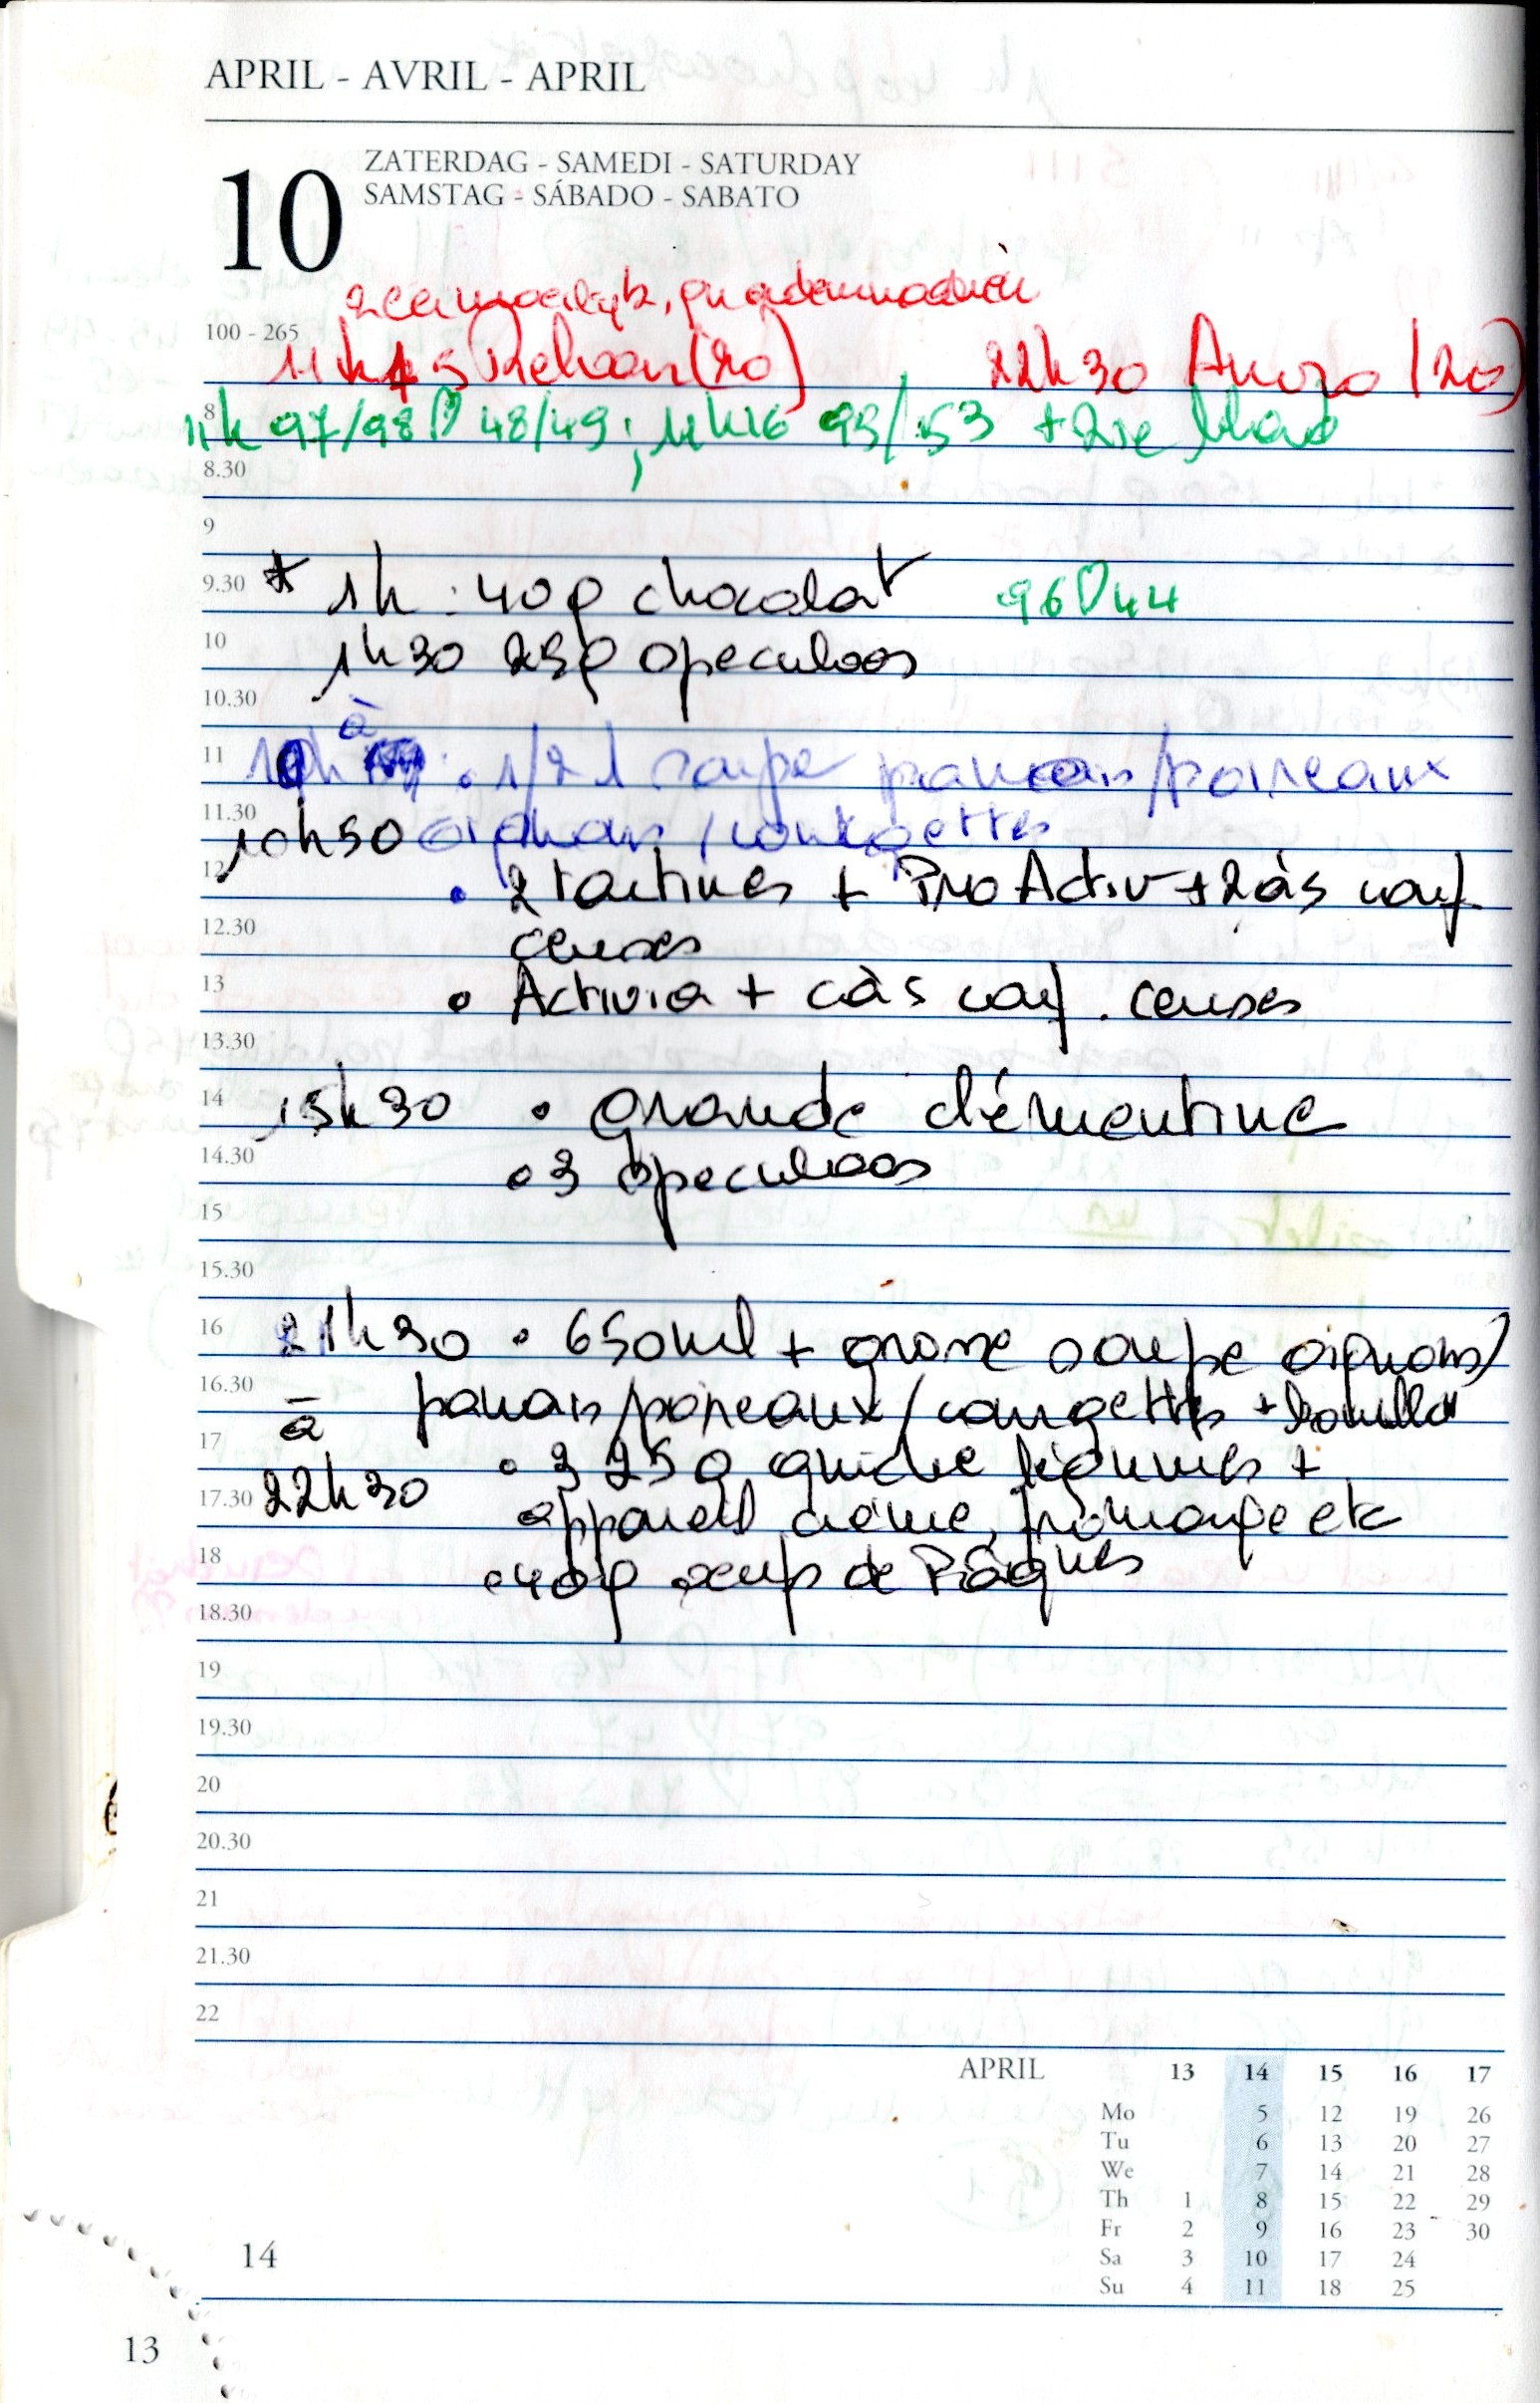 APRIL - AVRIL - APRIL
10
ZATERDAG - SAMEDI - SATURDAY
SAMSTAG - SÁBADO - SABATO
100 - 265
(20) 22h30 (20)
8
11h 97/98 48/49 ; 11h16 93/53 +
8.30
9
9.30 * 1h : 40g chocolat 96 44
10 1h30 25g speculoos
10.30
à
11 10h : • 1/2 l soupe panais/poireaux
11.30 oignons/courgettes
10h50
12 • 2 tartines + ProActiv + 2 càs conf.
12.30 cerises
13 • Activia + càs conf. cerises
13.30
14 15h30 • grande clémentine
14.30 • 3 speculoos
15
15.30
16 21h30 • 650ml + grosse soupe oignons/
16.30 à panais/poireaux/courgettes +
17 • 3 25g quiche +
17.30 22h30 appareil crème, fromage etc
18 • 40g oeufs de Pâques
18.30
19
19.30
20
20.30
21
21.30
22
APRIL 13 14 15 16 17
Mo 5 12 19 26
Tu 6 13 20 27
We 7 14 21 28
Th 1 8 15 22 29
Fr 2 9 16 23 30
Sa 3 10 17 24
Su 4 11 18 25
14
13